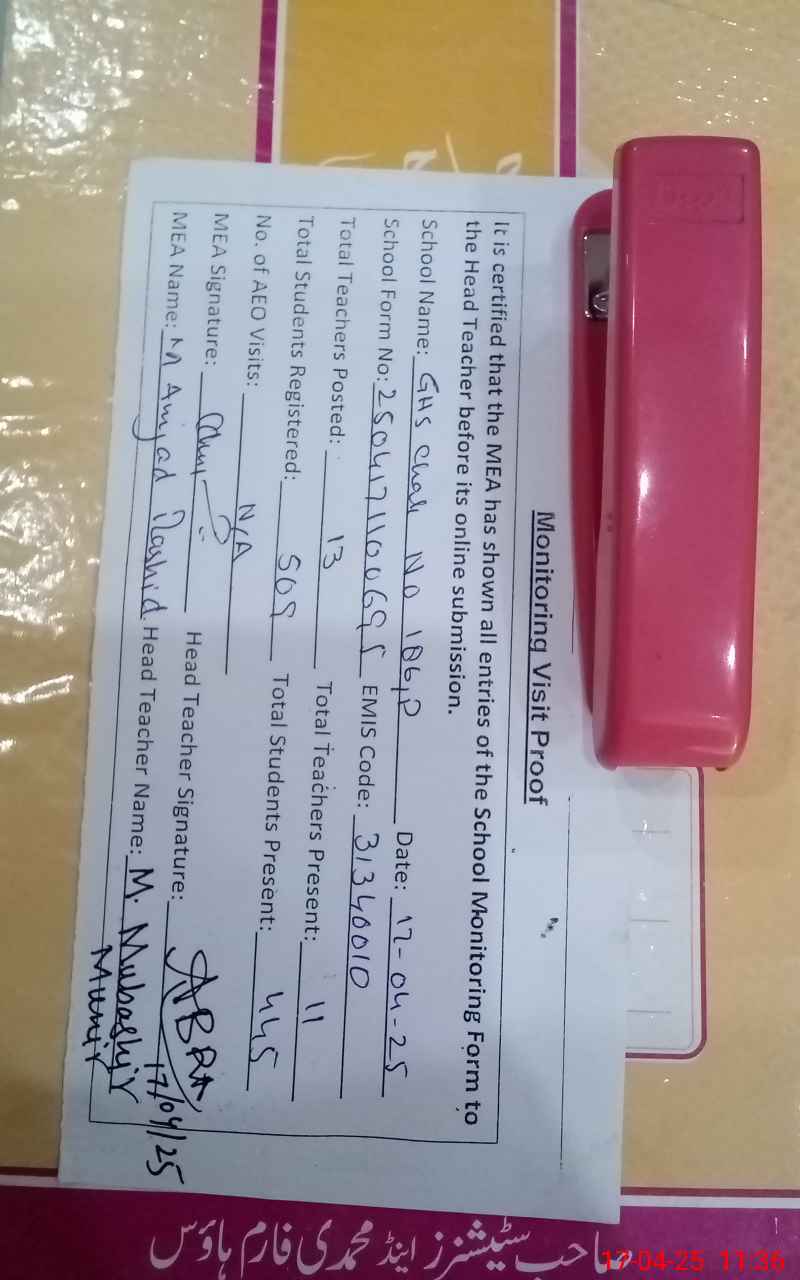 Monitoring Visit Proof
It is certified that the MEA has shown all entries of the School Monitoring Form to
the Head Teacher before its online submission.
School Name: GHS Chak No 186,P Date: 17-04-25
School Form No: 2504171100695 EMIS Code: 31340010
Total Teachers Posted: 13 Total Teachers Present: 11
Total Students Registered: 509 Total Students Present: 445
No. of AEO Visits: N/A
MEA Signature: Head Teacher Signature: 17/04/25
MEA Name: M Amjad Rashid Head Teacher Name: M. Mubashir
Munir
صاحب سٹیشنرز اینڈ محمدی فارم ہاؤس
17-04-25 11:36